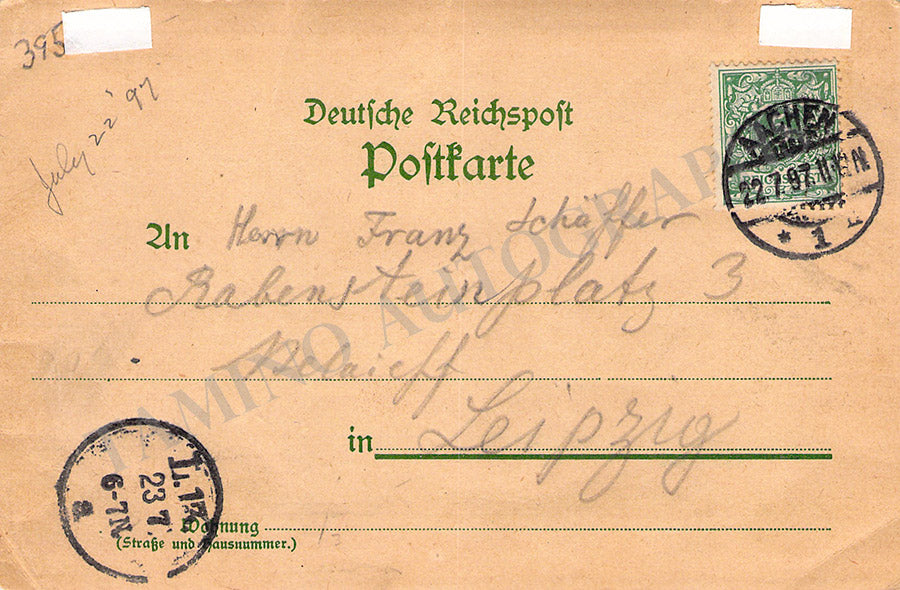 395
July 22 '97
Deutsche Reichspost
Postkarte
AACHEN
22.7.97.11-12N
* 1 *
An Herrn Franz Schäffer
Rabensteinplatz 3
in Leipzig
L.13
23 7.
6-7N
a
Wohnung
(Straße und Hausnummer.)
TAMINO AUTOGRAPHS